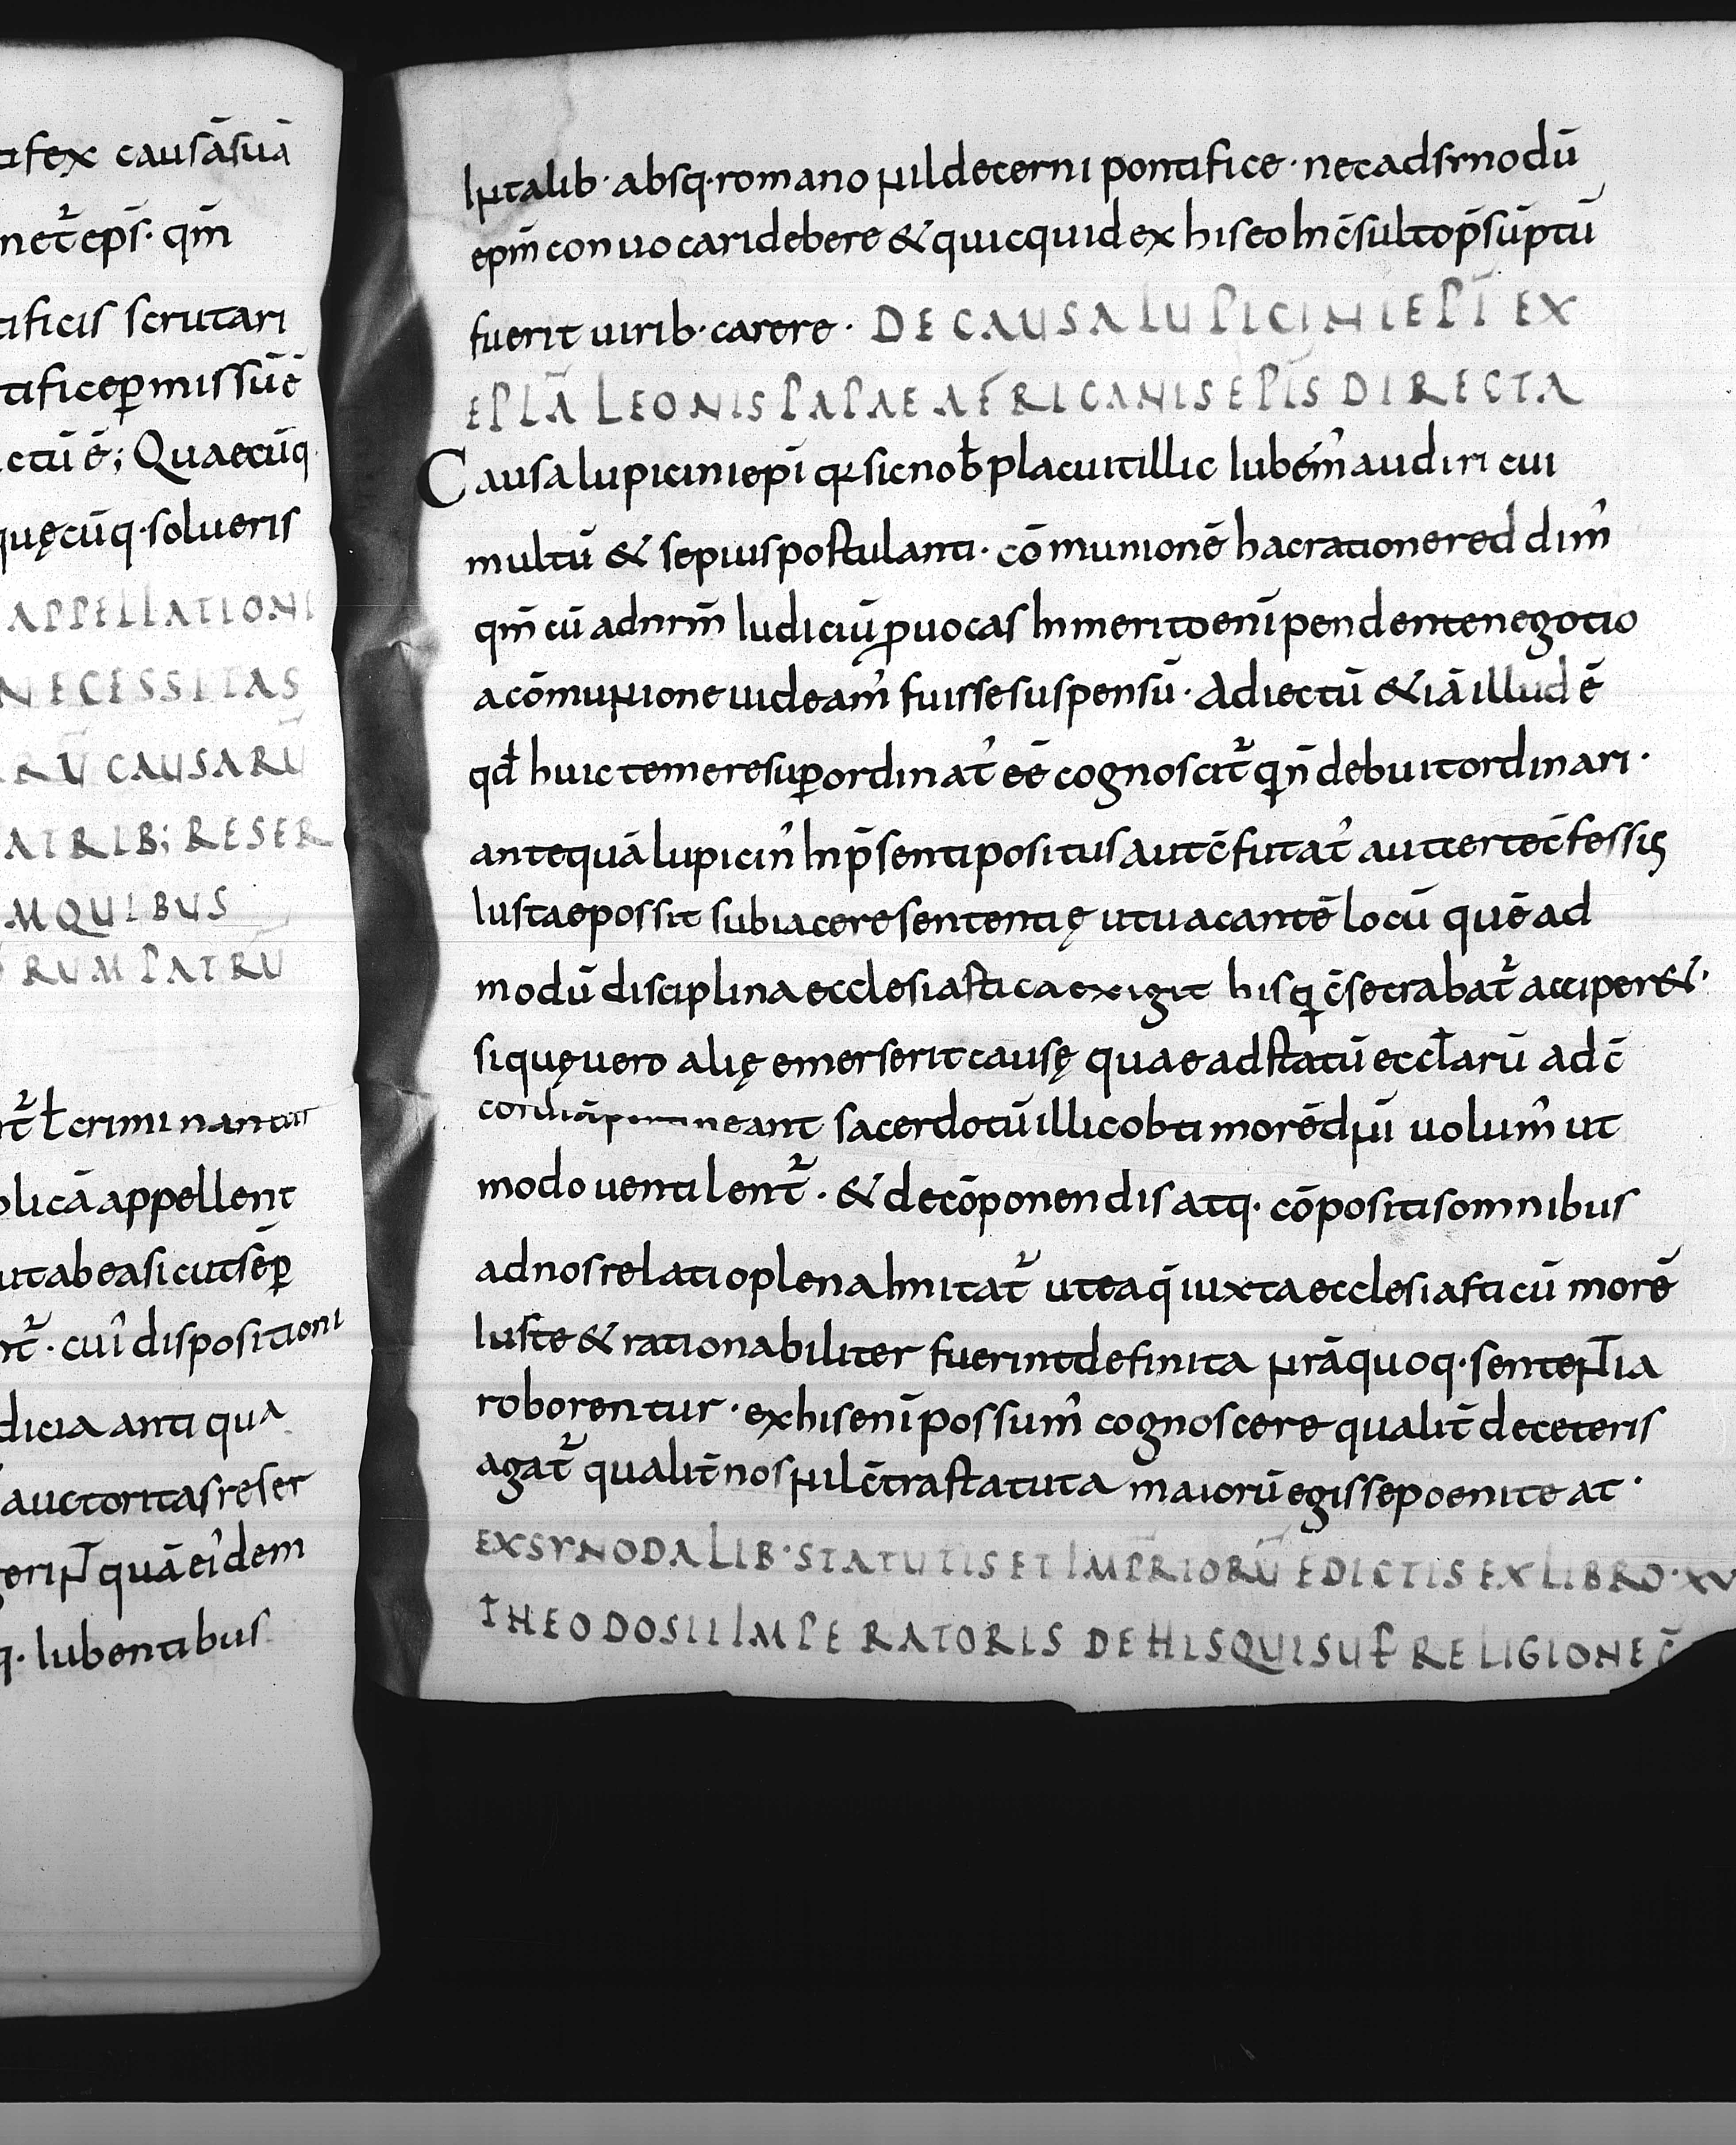 fex causāsuā
net᷑ ep̄s · qm̄
ificis scrutari
tifice ꝑmissū ē
ctū ē; Quaecūq·
quęcūq· solueris
APPELLATIONI
NECESSITAS
RŪ CAUSARŪ
ATRIB; RESER
MQUIBUS
RUM PATRŪ
ł criminantur
olicā appellent
utabea sicut sēꝑ
cui᾽ dispositioni
dicia antiqua
auctoritas reser
quā ei᾽dem
q· Iubentibus
Intalib· absq· romano nil decerni pontifice · nec ad synodū
epm̄ conuocari debere & quicquid ex his eo Inc̄sulto p̄sūptū
fuerit uirib· carere · DE CAUSA LUPICINI EPĪ EX
EPLĀ LEONIS PAPAE AFRICANIS EPĪS DIRECTA
Causa lupicini epī qr sic nob̄ placuit illic Iubem᾽ audiri cui
multū & sepius postulanti · cōmunionē hac ratione reddim᾽
qm̄ cū ad nrm̄ Iudiciū ꝓuocas Inmerito enī pendente negotio
a cōmunione uideam᾽ fuisse suspensū · Adiectū & iā illud ē
qđ huic temere suꝑordinat᾽ eē cognoscit᷑ q n̄ debuit ordinari ·
antequā lupicin᾽ Inp̄senti positus aut c̄futat᾽ aut certe c̄fessis
Iustae possit subiacere sententię ut uacantē locū quēad
modū disciplina ecclesiastica exigit his q c̄secrabat᷑ acciper& ·
si quę uero alię emerserit causę quae ad statū eccłarū ad c̄
cordiā pertineant sacerdotū illic ob timorē dni uolum᾽ ut
modo uentilent᷑ · & de cōponendis atq· cōpositis omnibus
ad nos relatio plena Initat᷑ ut ea q̄ iuxta ecclesiasticū morē
Iuste & rationabiliter fuerint definita nrā quoq· sententia
roborentur · ex his enī possum᾽ cognoscere qualit̄ de ceteris
agat᷑ qualit̄ nos nil c̄tra statuta maiorū egisse poeniteat ·
EX SYNODALIB· STATUTIS ET IMPRIORŪ EDICTIS EX LIBRO · XV
THEODOSII IMPERATORIS DE HIS QUI SUꝑ RELIGIONE C̄